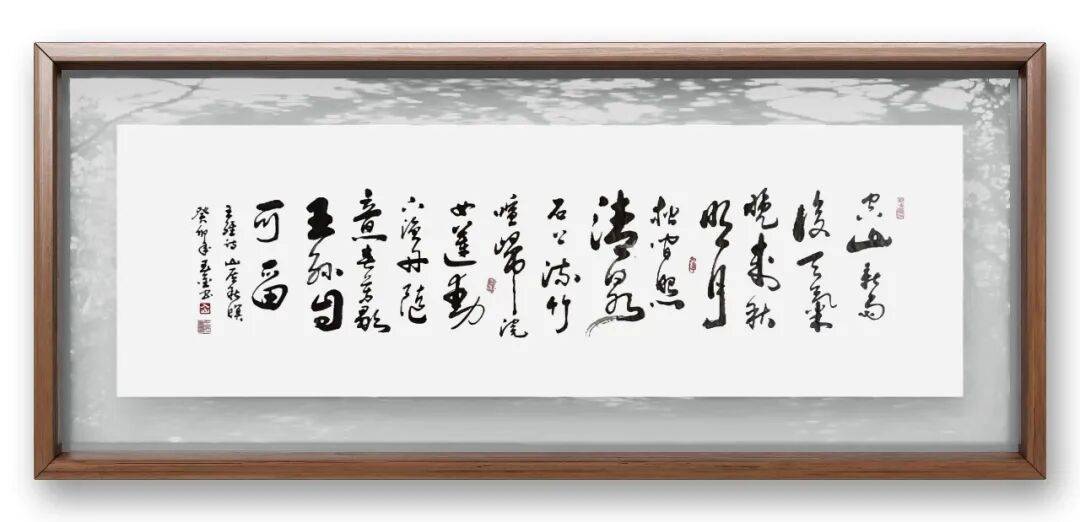 空山新雨
後天氣
晚來秋
明月
松間照
清泉
石上流竹
喧歸浣
女蓮動
下漁舟隨
意春芳歇
王孫自
可留
王維詩山居秋暝
癸卯年玉书